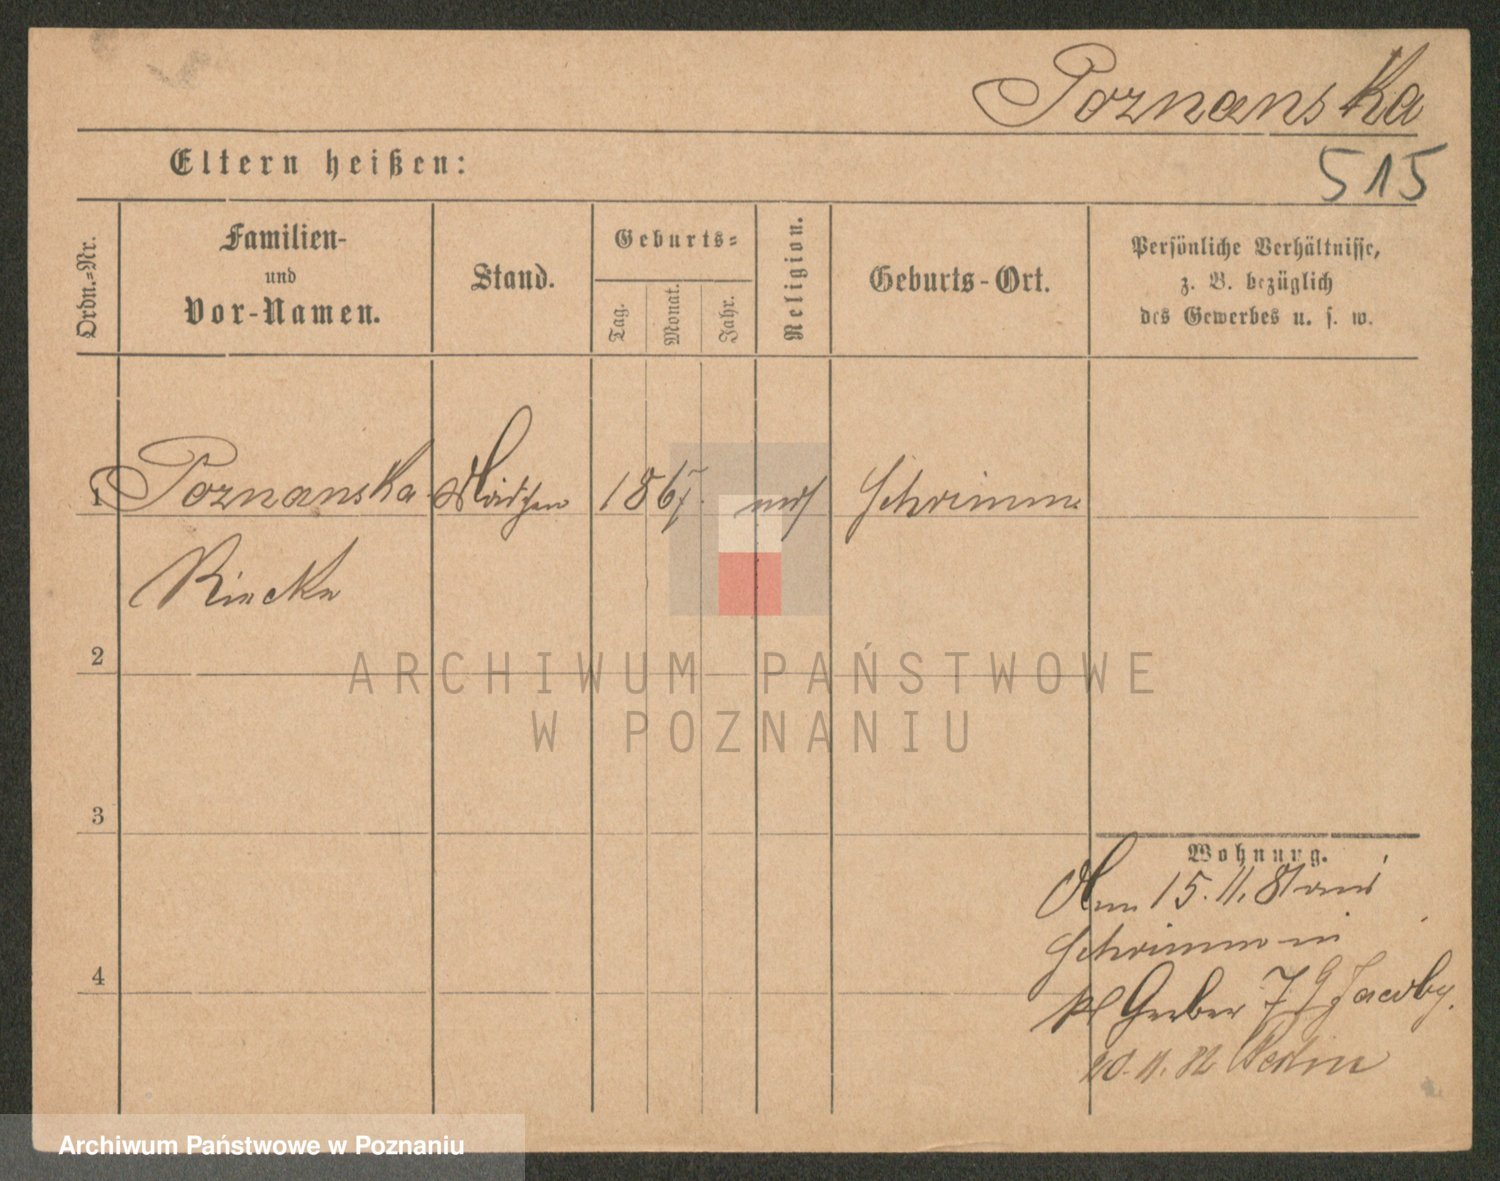 Poznanska
515
Eltern heißen:
Ordn.=Nr.
Familien-
und
Vor-Namen.
Stand.
Geburts=
Tag.
Monat.
Jahr.
Religion.
Geburts-Ort.
Persönliche Verhältnisse,
z. B. bezüglich
des Gewerbes u. s. w.
1 Poznanska Mädchen 1867. mos Schrimm
Riecke
2
3
4
Wohnung.
Am 15.11.81 aus
Schrimm in
kl Gerber 7 Jacoby.
20.11.82 Berlin
ARCHIWUM PAŃSTWOWE
W POZNANIU
Archiwum Państwowe w Poznaniu